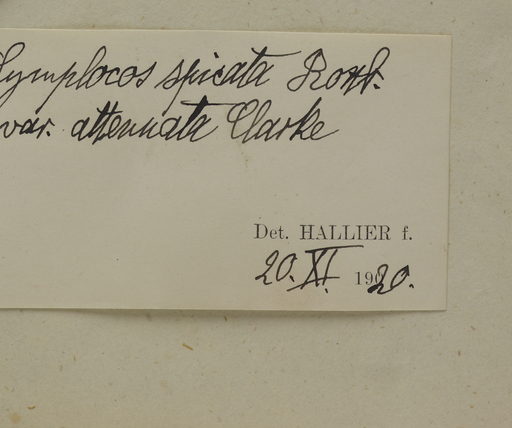 Symplocos spicata Roxb.
var. attenuata Clarke
Det. HALLIER f.
20. XI. 1920.